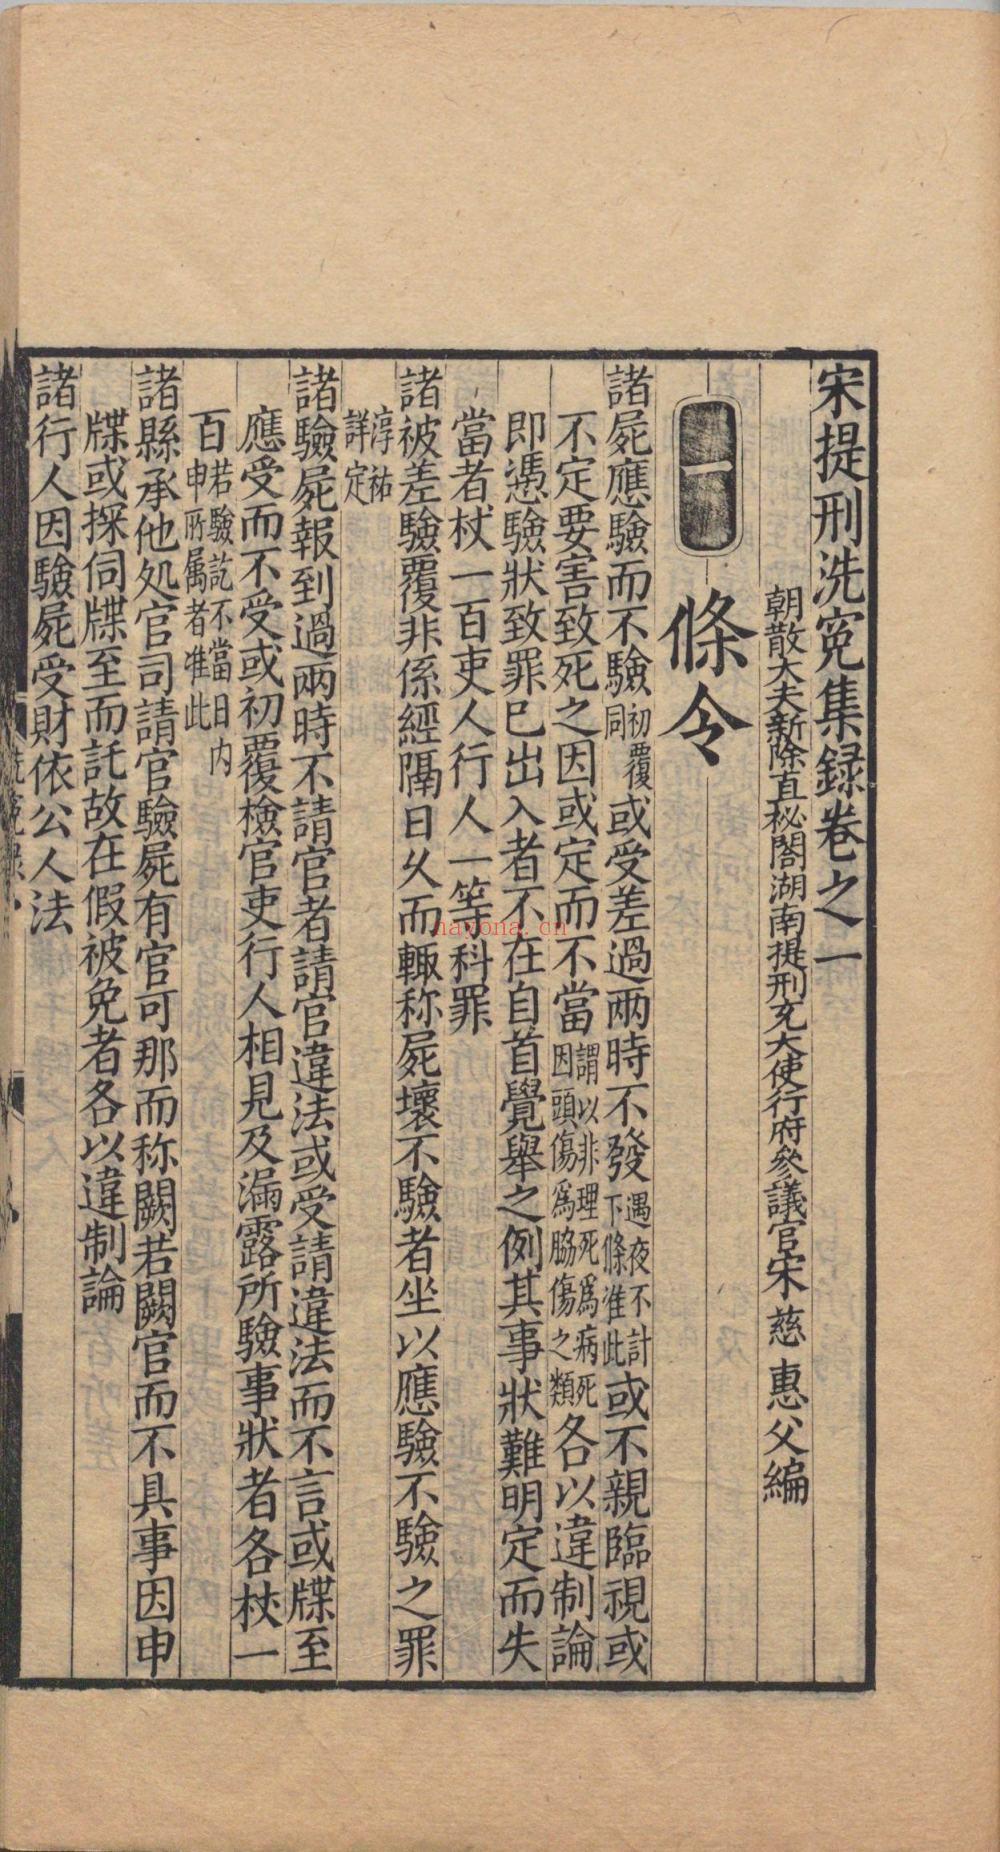 宋提刑洗冤集録卷之一
朝散大夫新除直秘閣湖南提刑充大使行府參議官宋慈惠父編
一 條令
諸屍應驗而不驗初覆同或受差過兩時不發遇夜不計下條准此或不親臨視或
不定要害致死之因或定而不當謂以非理死爲病死因頭傷爲脇傷之類各以違制論
即憑驗狀致罪已出入者不在自首覺舉之例其事狀難明定而失
當者杖一百吏人行人一等科罪
諸被差驗覆非係經隔日久而輙称屍壞不驗者坐以應驗不驗之罪
淳祐詳定
諸驗屍報到過兩時不請官者請官違法或受請違法而不言或牒至
應受而不受或初覆檢官吏行人相見及漏露所驗事狀者各杖一
百若驗訖不當日内申所属者准此
諸縣承他処官司請官驗屍有官可那而称闕若闕官而不具事因申
牒或探伺牒至而託故在假被免者各以違制論
諸行人因驗屍受財依公人法
nayona.cn